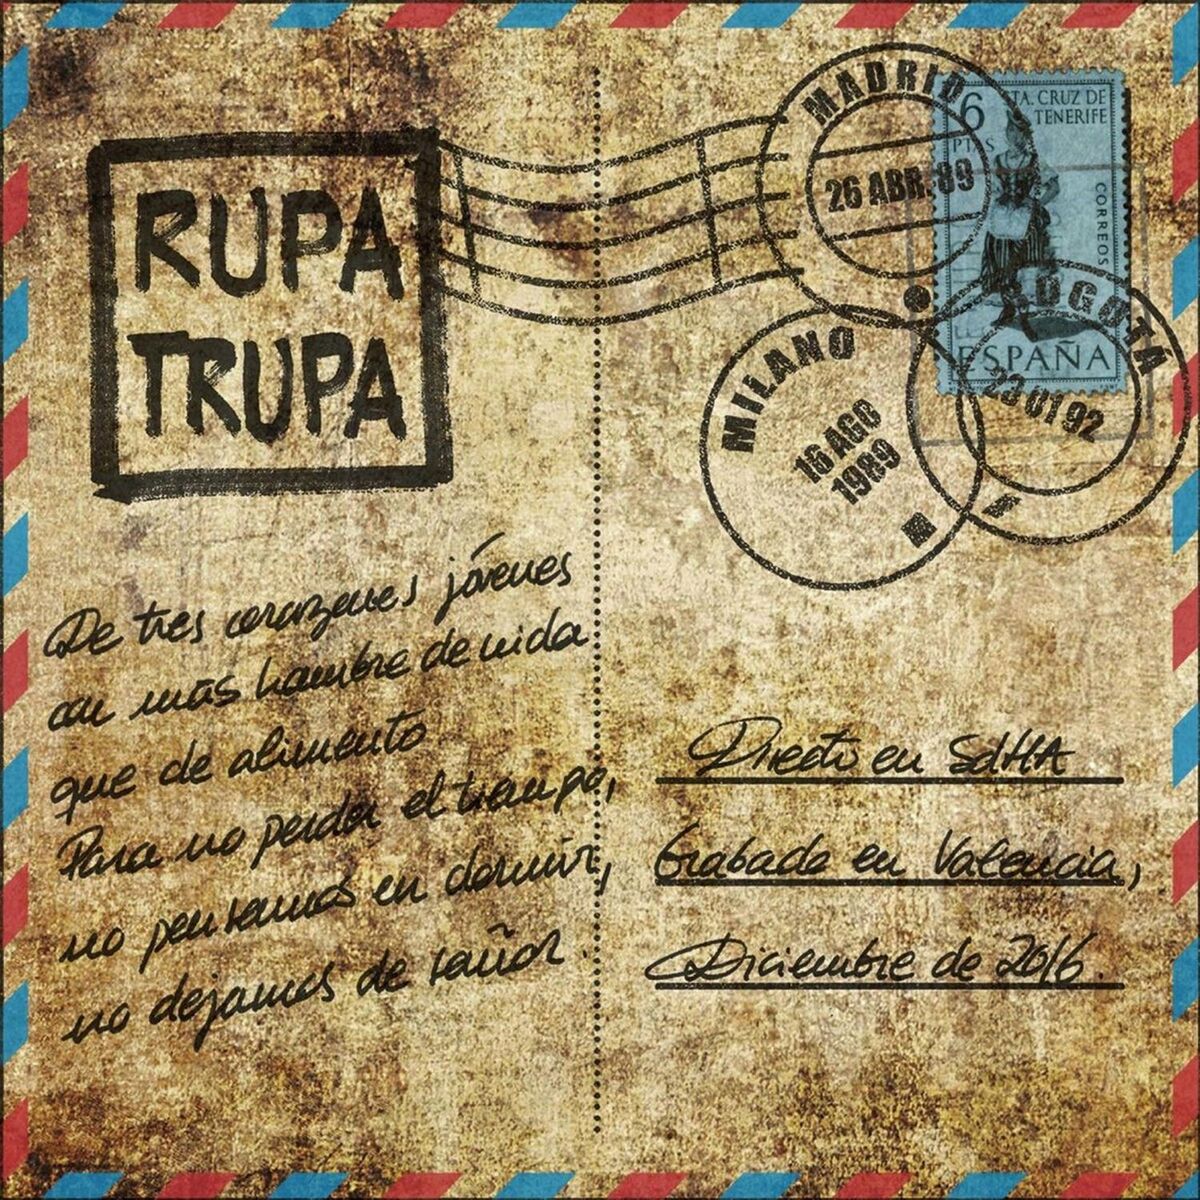 RUPA
TRUPA
MADRID
26 ABR. 89
6
PTAS
STA. CRUZ DE
TENERIFE
CORREOS
ESPAÑA
BOGOTÁ
23 01 92
MILANO
16 AGO
1989
De tres corazones jóvenes
con más hambre de vida
que de alimento
Para no perder el tiempo,
no pensamos en dormir,
no dejamos de soñar.
Directo en SdHA
Grabado en Valencia,
Diciembre de 2016.